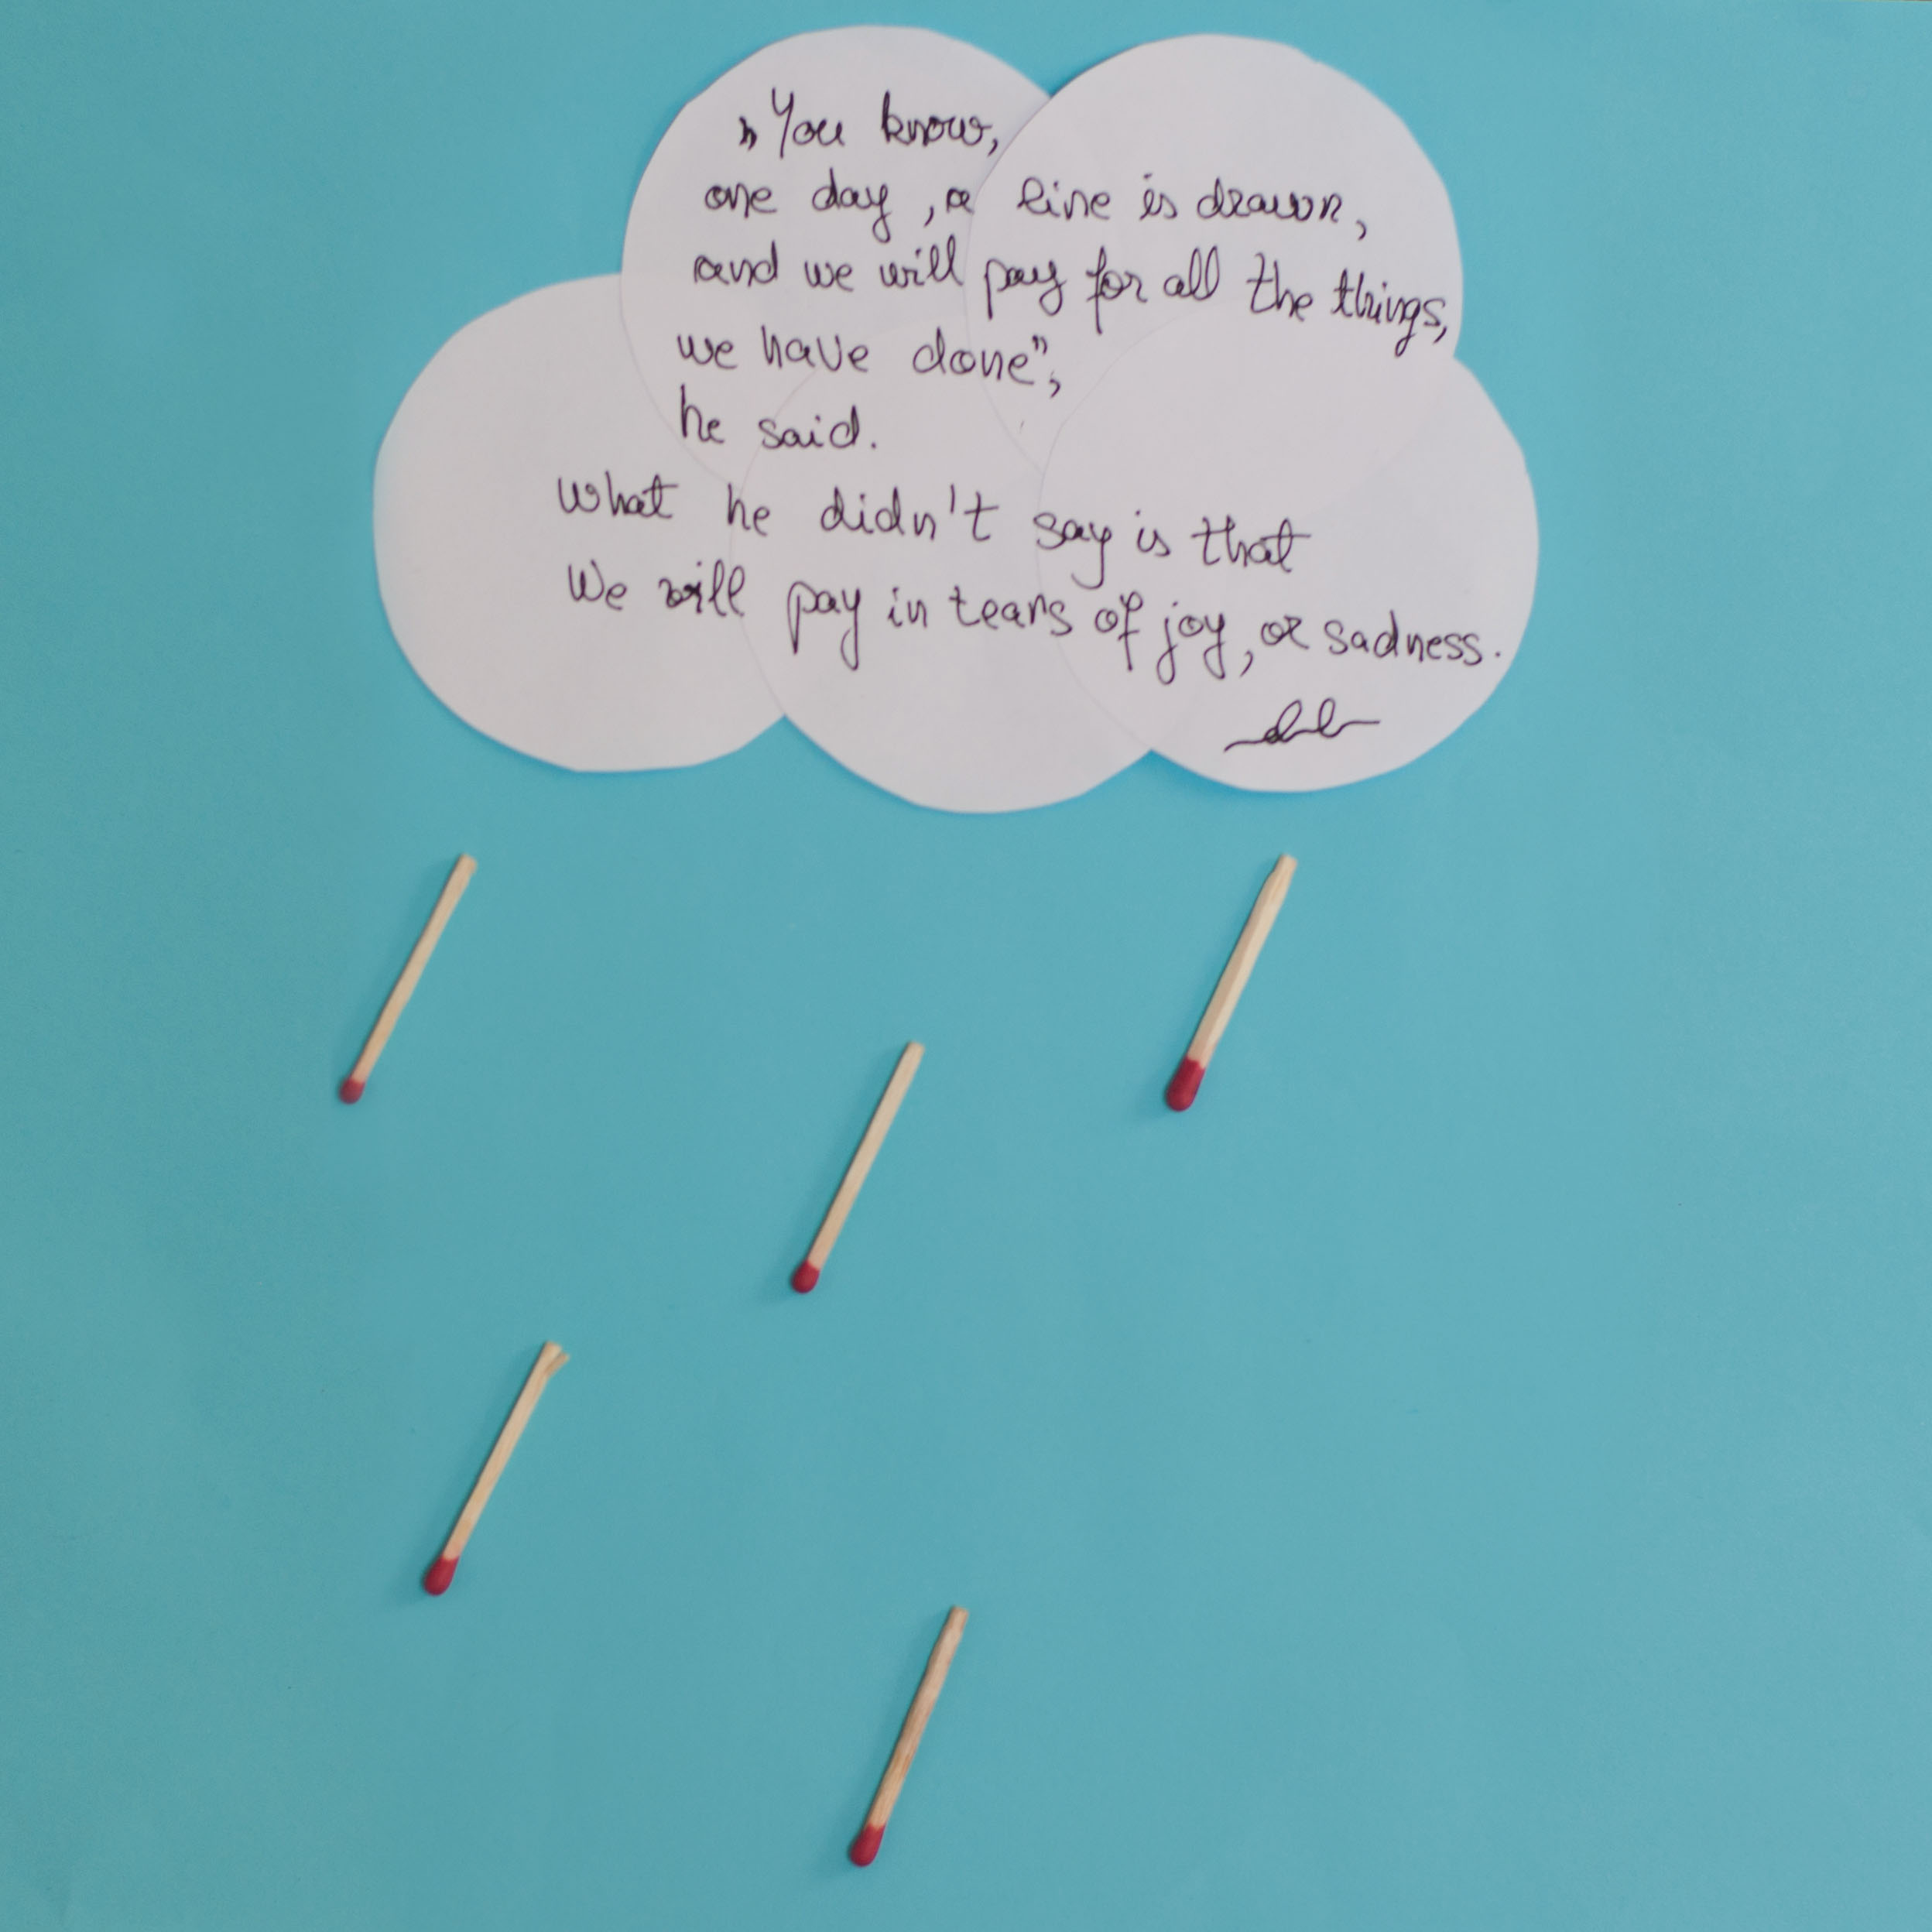 „You know,
one day, a line is drawn,
and we will pay for all the things,
we have done”,
he said.
What he didn't say is that
We will pay in tears of joy, or sadness.